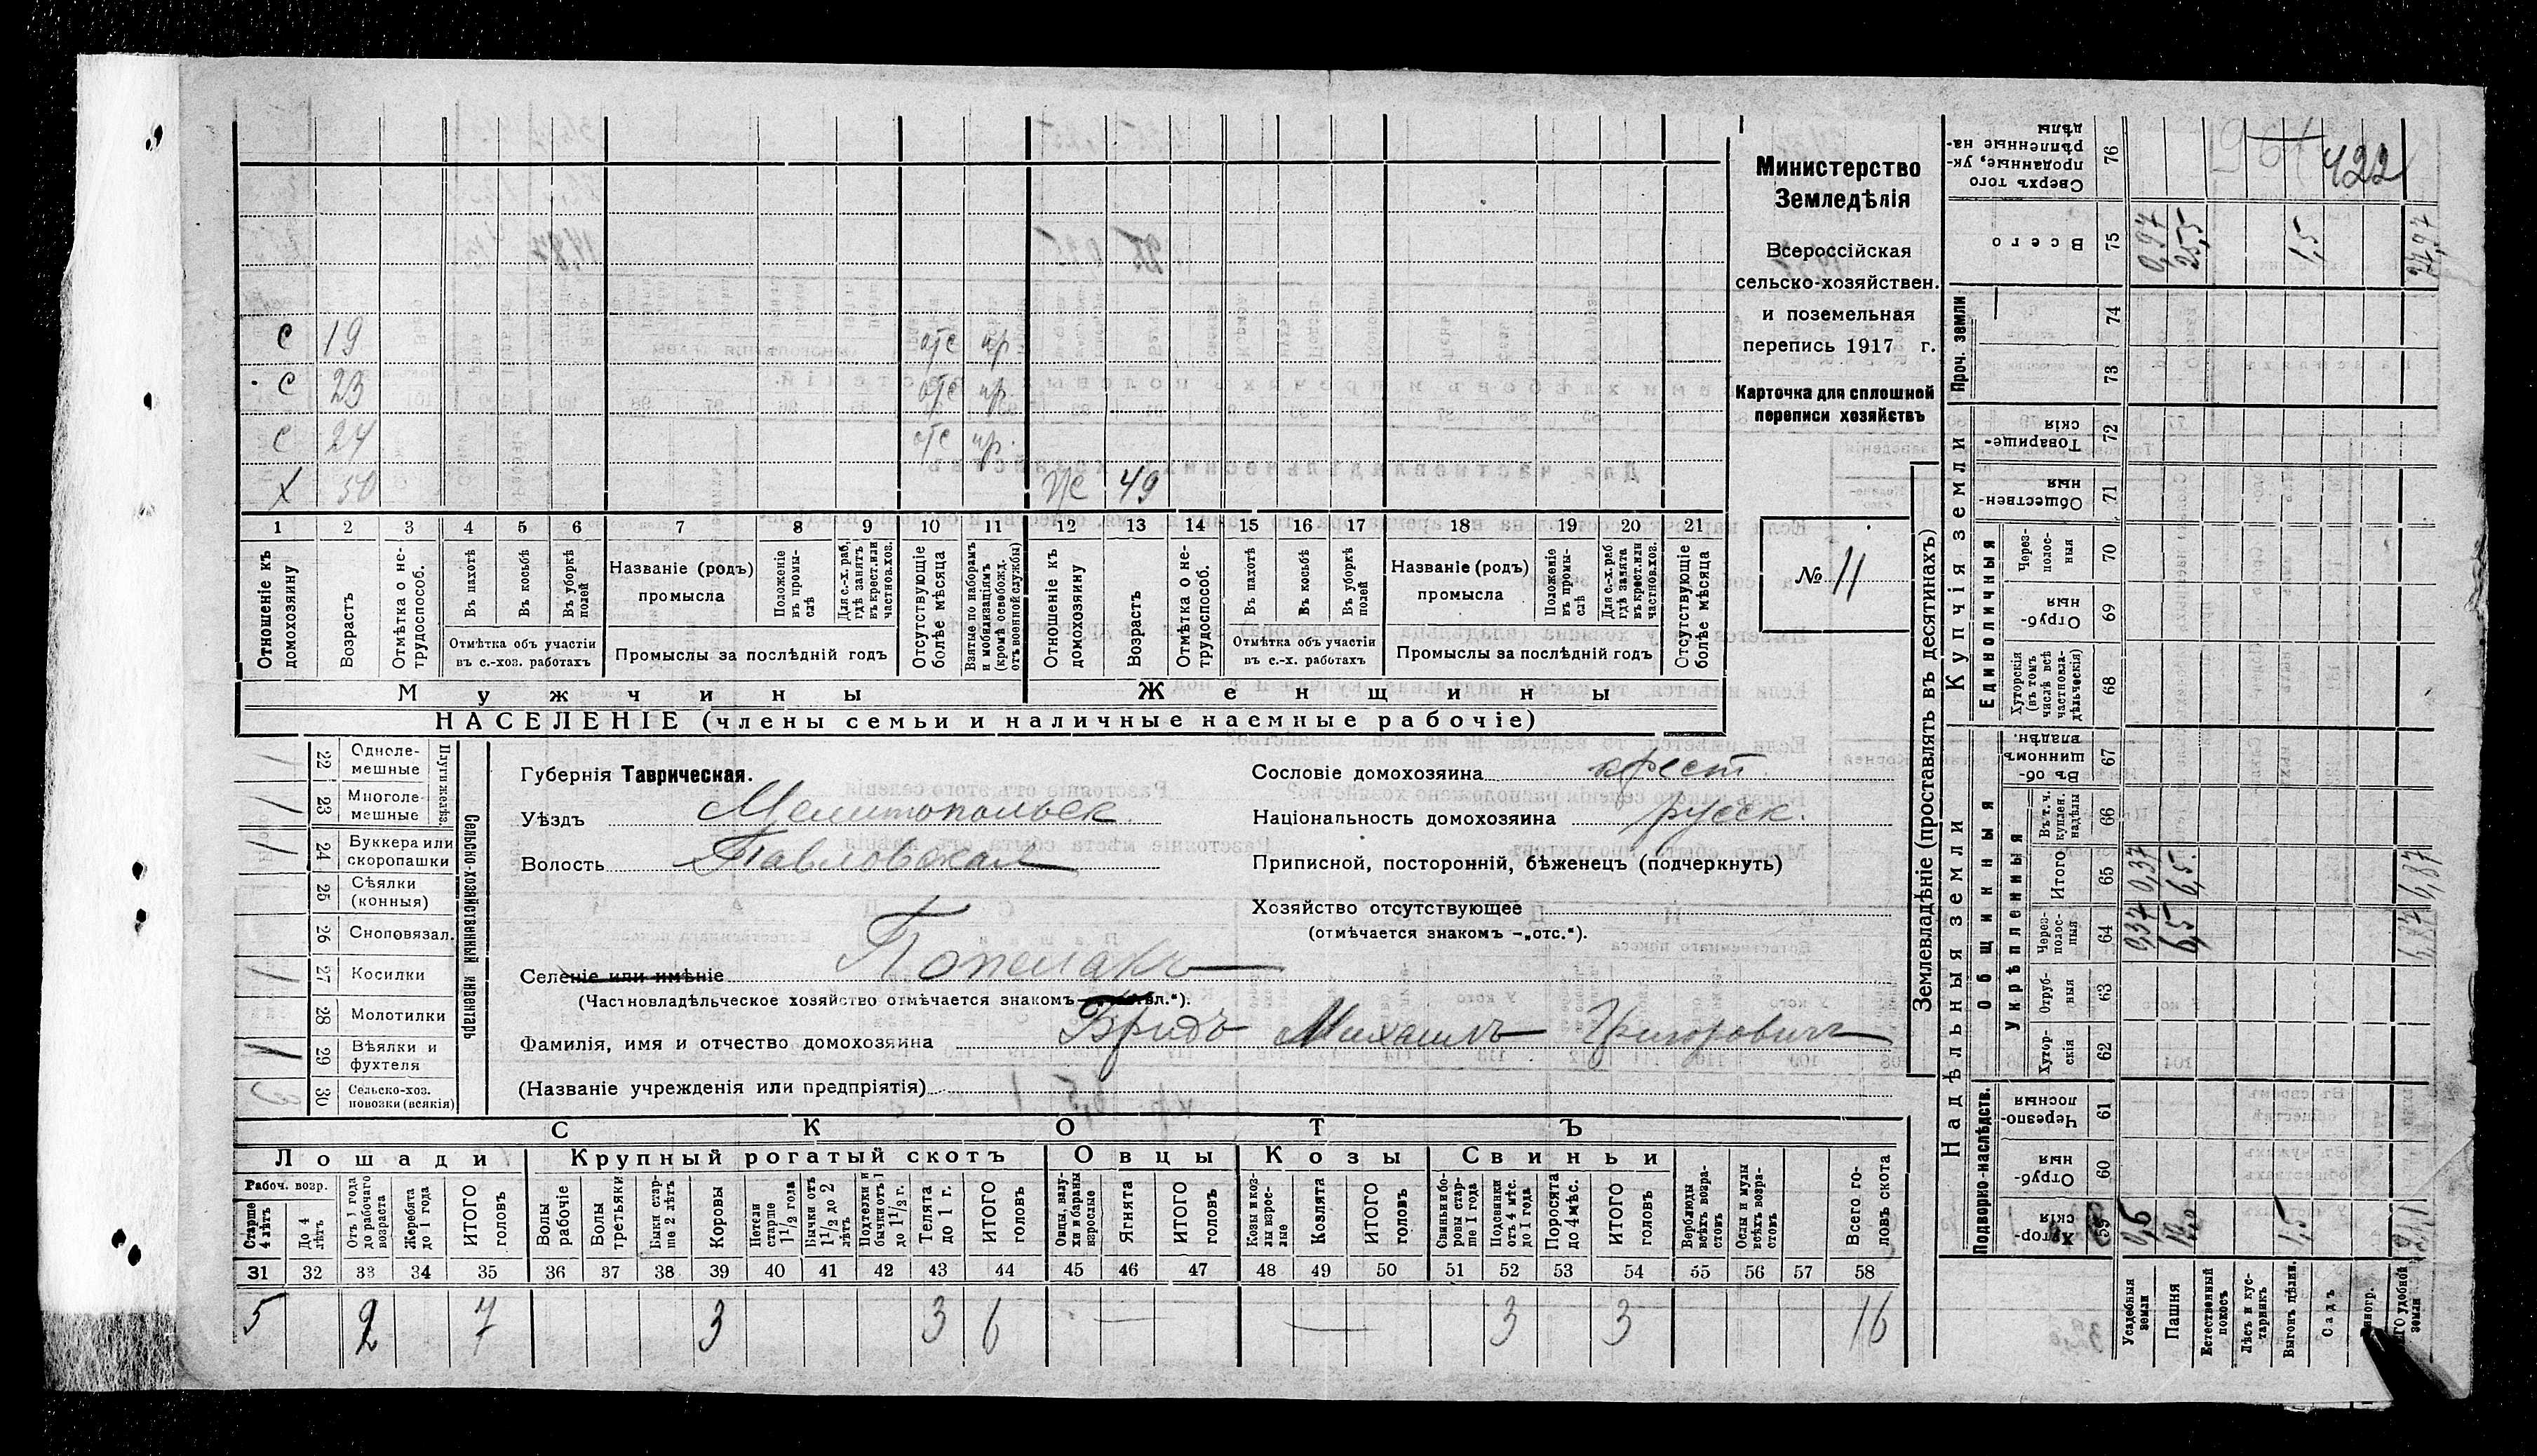 Министерство
Земледѣлія
Всероссійская
сельско-хозяйствен.
и поземельная
перепись 1917 г.
Карточка для сплошной
переписи хозяйствъ
№ 11
422
с 19 отс пр.
с 23 отс пр.
с 24 отс пр.
х 50 ж 49
1 2 3 4 5 6 7 8 9 10 11 12 13 14 15 16 17 18 19 20 21
Отношеніе къ домохозяину
Возрастъ
Отмѣтка о нетрудоспособ.
Въ пахотѣ
Въ косьбѣ
Въ уборкѣ полей
Отмѣтка объ участіи
въ с.-хоз. работахъ
Названіе (родъ)
промысла
Положеніе въ промыслѣ
Для с.-х. раб, гдѣ занятъ въ крест. или частнов. хоз.
Промыслы за послѣдній годъ
Отсутствующіе болѣе мѣсяца
Взятые по наборамъ и мобилизаціямъ (кромѣ освобожд. отъ военной службы)
Отношеніе къ домохозяину
Возрастъ
Отмѣтка о нетрудоспособ.
Въ пахотѣ
Въ косьбѣ
Въ уборкѣ полей
Отмѣтка объ участіи
въ с.-х. работахъ
Названіе (родъ)
промысла
Положеніе въ промыслѣ
Для с.-х. раб гдѣ занята въ крест. или частнов. хоз.
Промыслы за послѣдній годъ
Отсутствующіе болѣе мѣсяца
Мужчины Женщины
НАСЕЛЕНІЕ (члены семьи и наличные наемные рабочіе)
Сельско-хозяйственный инвентарь
22 Одноле-
мешные
23 Многоле-
мешные
24 Буккера или
скоропашки
25 Сѣялки
(конныя)
26 Сноповязал.
27 Косилки
28 Молотилки
29 Вѣялки и
фухтеля
30 Сельско-хоз.
повозки (всякія)
Губернія Таврическая.
Уѣздъ Мелитопольск.
Волость Павловская
Селеніе или имѣніе
(Частновладѣльческое хозяйство отмѣчается знакомъ
Фамилія, имя и отчество домохозяина Бридъ Михаилъ Григоровичъ
(Названіе учрежденія или предпріятія)
Сословіе домохозяина крест.
Національность домохозяина русск.
Приписной, посторонній, бѣженецъ (подчеркнуть)
Хозяйство отсутствующее
(отмѣчается знакомъ —„отс.“).
СКОТЪ
Лошади Крупный рогатый скотъ Овцы Козы Свиньи
Рабоч. возр.
Старше 4 лѣтъ
До 4 лѣтъ
Отъ 1 года до рабочаго возраста
Жеребята до 1 года
ИТОГО головъ
Волы рабочіе
Волы третьяки
Быки старше 2 лѣтъ
Коровы
Нетели старше 1 1/2 года
Бычки отъ 1 1/2 до 2 лѣтъ
Подтелки и бычки отъ 1 до 1 1/2 г.
Телята до 1 г.
ИТОГО головъ
Овцы, валухи и бараны взрослые
Ягнята
ИТОГО головъ
Козы и козлы взрослые
Козлята
ИТОГО головъ
Свиньи и боровы старше 1 года
Подсвинки отъ 4 мѣс. до 1 года
Поросята до 4 мѣс.
ИТОГО головъ
Верблюды всѣхъ возрастовъ
Ослы и мулы всѣхъ возрастовъ
Всего головъ скота
31 32 33 34 35 36 37 38 39 40 41 42 43 44 45 46 47 48 49 50 51 52 53 54 55 56 57 58
5 2 7 3 3 6 — — 3 3 16
Землевладѣніе (проставлять въ десятинахъ)
Надѣльныя земли Купчія земли Проч. земли
Подворно-наслѣдств. Общинныя Единоличныя
Укрѣпленныя
Сверхъ того проданные, укрѣпленные надѣлы 76
Всего 75 0,97 25,5 1,5 27,97
74
73
Товарищескія 72
Общественныя 71
Черезполосныя 70
Отрубныя 69
Хуторскія (въ томъ числѣ всѣ частновладѣльческія) 68
Въ общинномъ владѣн. 67
Въ т. ч. куплен. надѣлы 66
Итого 65 0,37 6,5 6,87
Черезполосныя 64 0,37 6,5 6,87
Отрубныя 63
Хуторскія 62
Черезполосныя 61
Отрубныя 60
Хуторскія 59 1,5 21,1
Усадебныя земли
Пашня
Естественный покосъ
Лѣсъ и кустарникъ
Выгонъ цѣлин.
Садъ